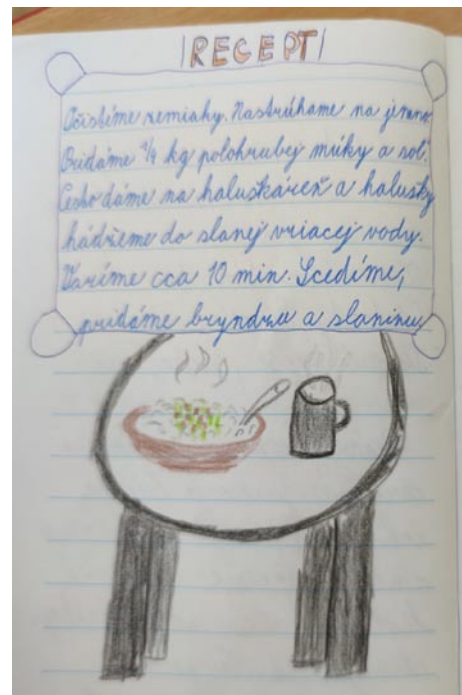 RECEPT
Očistíme zemiaky. Nastrúhame na jemno.
Pridáme ¾ kg polohrubej múky a soľ.
Cesto dáme na haluškáreň a halušky
hádžeme do slanej vriacej vody.
Varíme cca 10 min. Scedíme,
pridáme bryndzu a slaninu